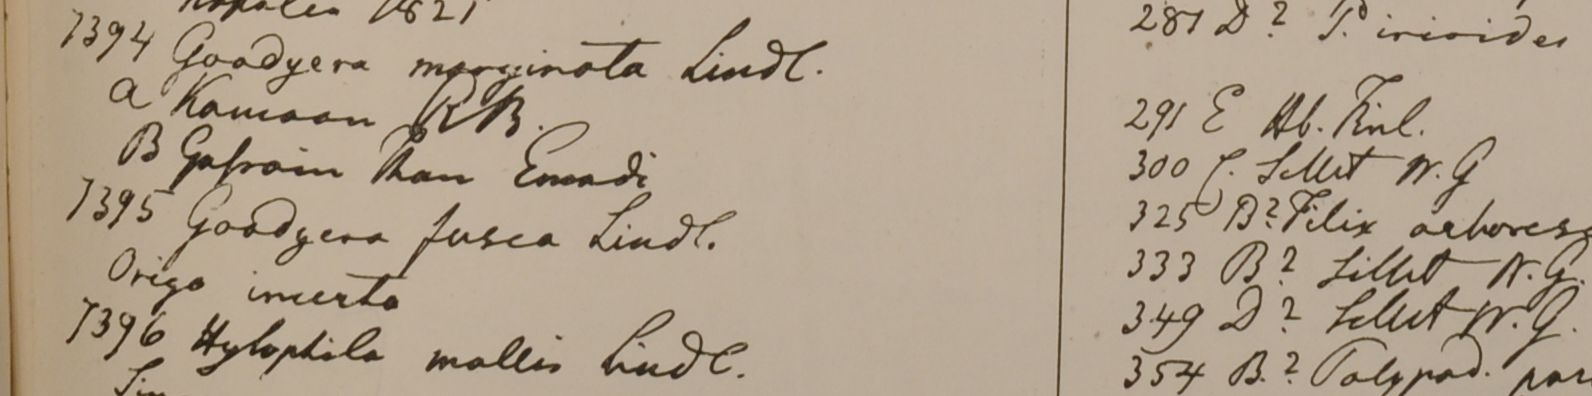 Napalia 1821
7394 Goodyera marginata Lindl.
a Kamaon R B.
B
7395 Goodyera fusca Lindl.
Origo incerta
7396 Hylophila mollis Lindl.
281 D? P. irioides
291 E Hb. Finl.
300 C. Sillet W. G
325 B? Filix arboresc
333 B? Sillet W. G.
349 D? Sillet W. G.
354 B.? Polypod. par